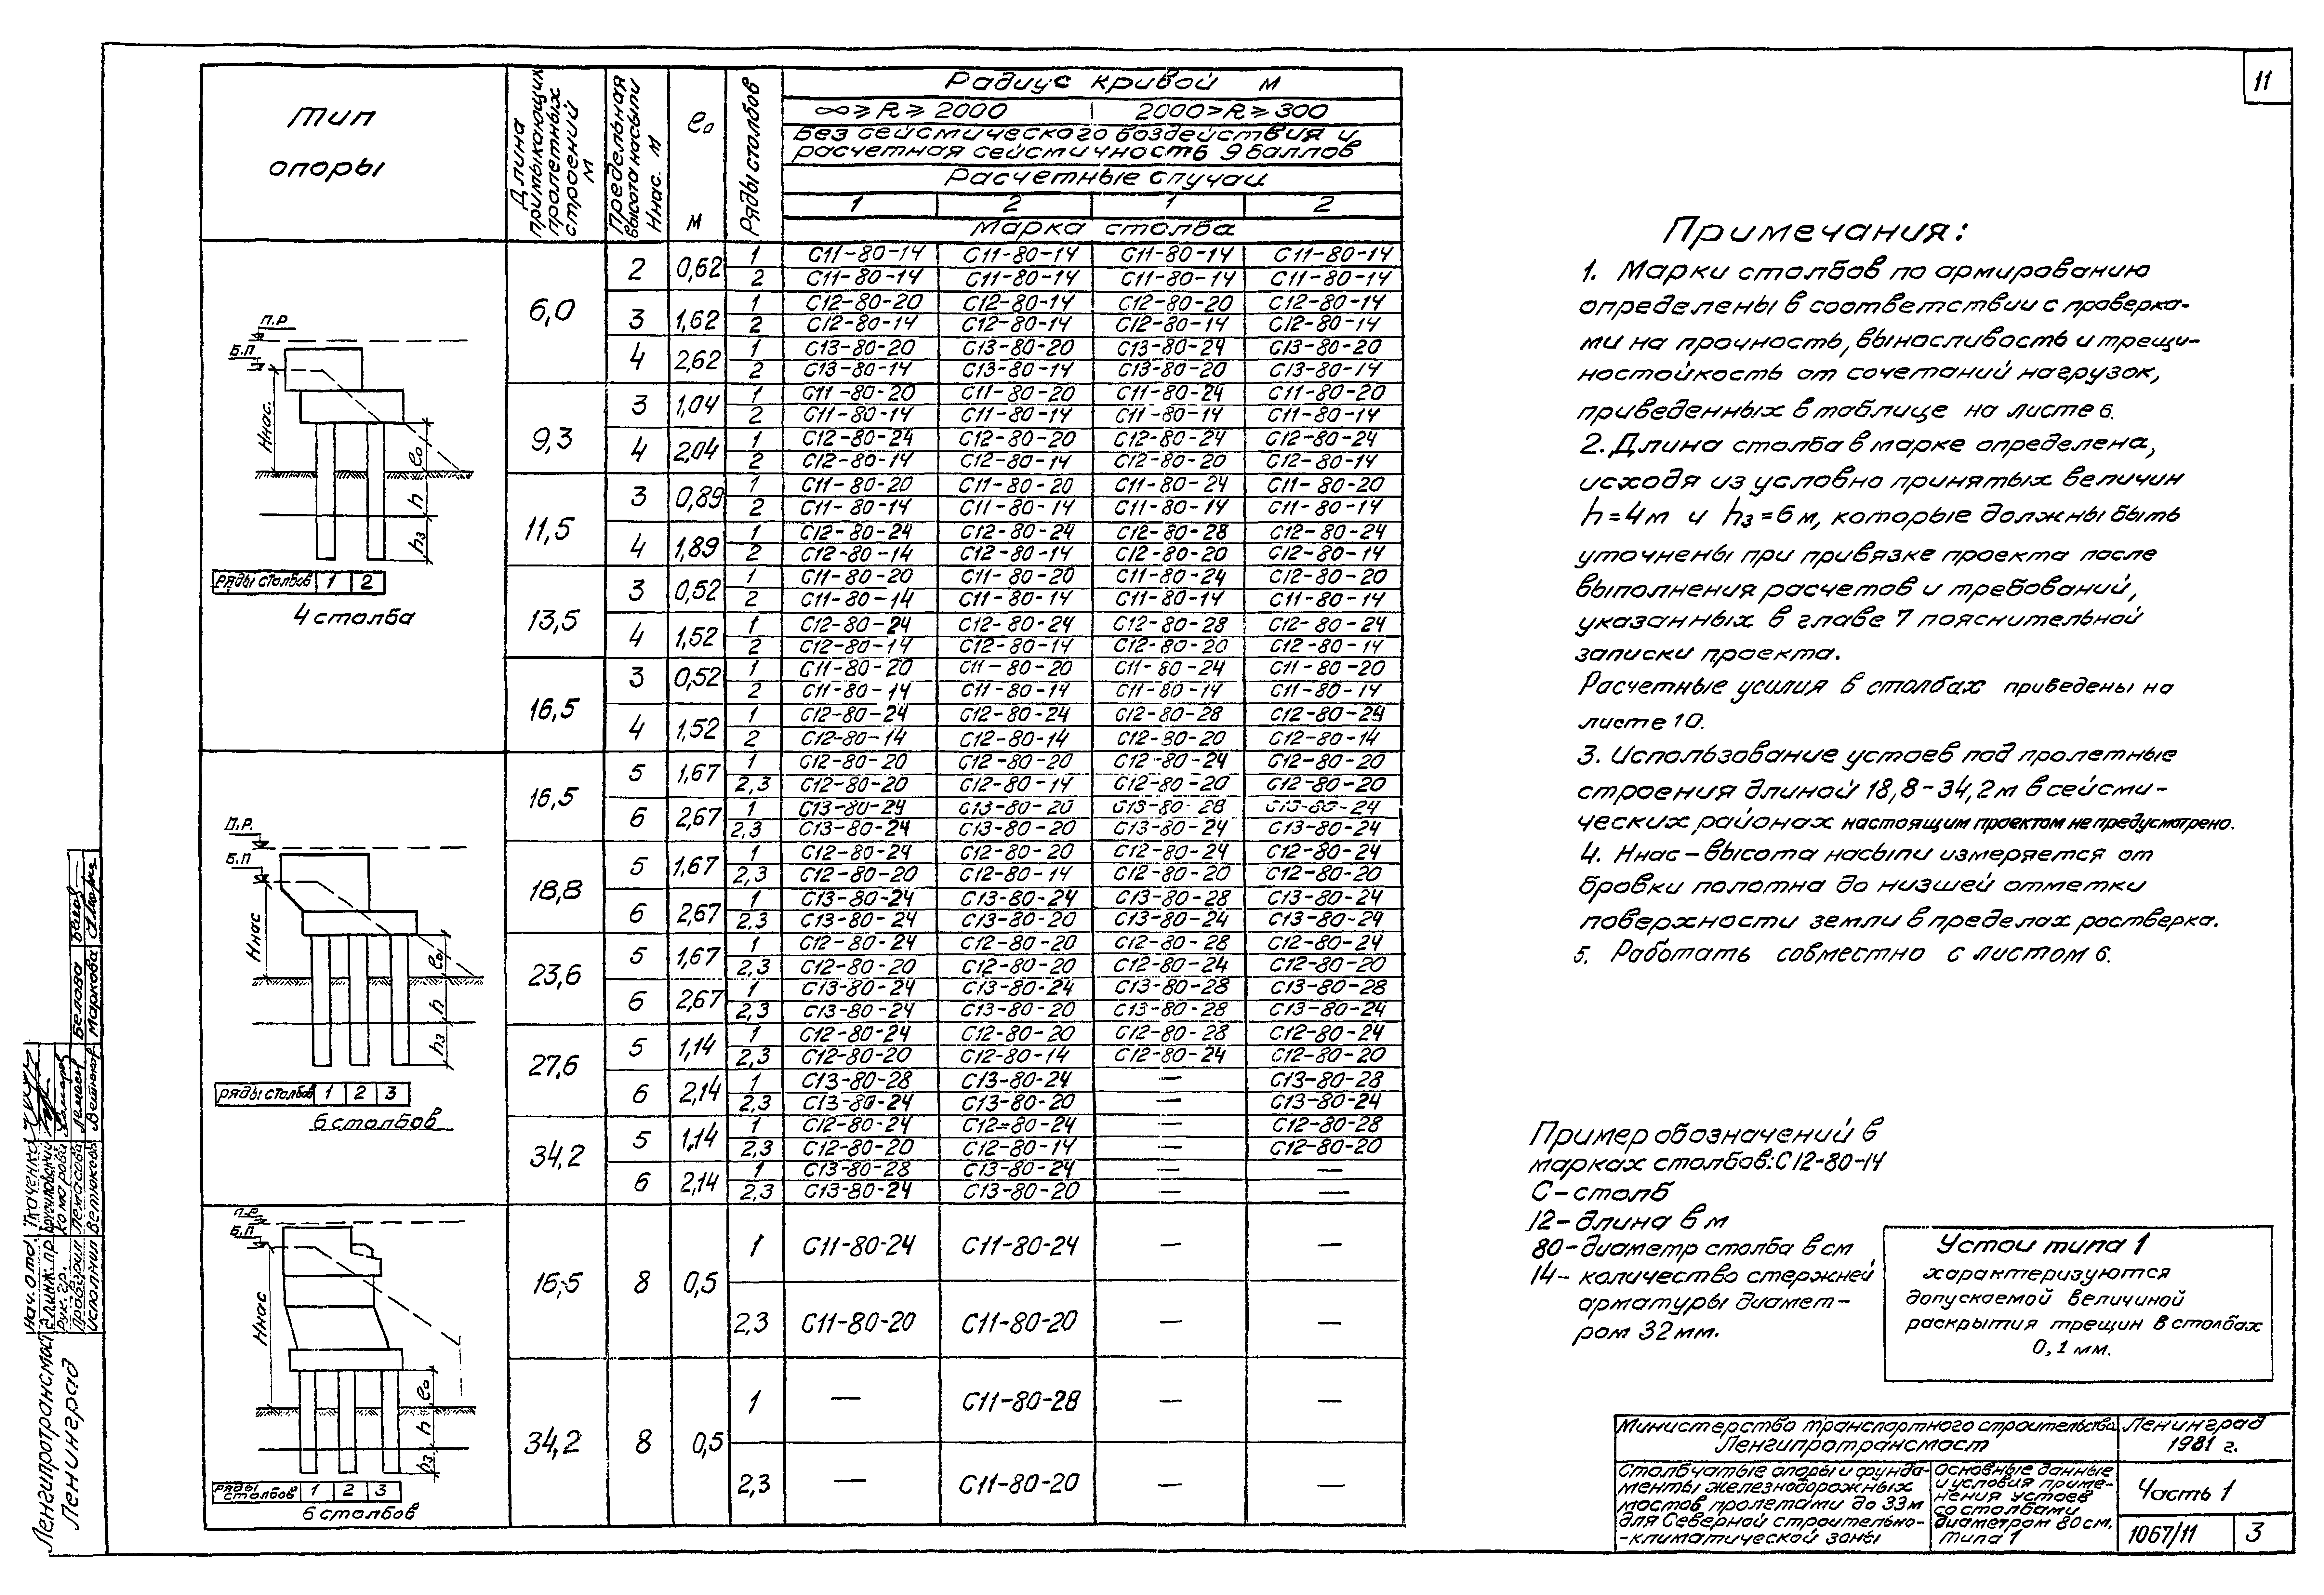 11
Тип опоры
Длина примыкающих пролетных строений м
Предельная высота насыпи Ннас. м
e₀ м
Ряды столбов
Радиус кривой м
∞ ≥ R ≥ 2000 | 2000 > R ≥ 300
Без сейсмического воздействия и
расчетная сейсмичность 9 баллов
Расчетные случаи
1 2 1 2
Марка столба
6,0 2 0,62 1 С11-80-14 С11-80-14 С11-80-14 С11-80-14
2 С11-80-14 С11-80-14 С11-80-14 С11-80-14
3 1,62 1 С12-80-20 С12-80-14 С12-80-20 С12-80-14
2 С12-80-14 С12-80-14 С12-80-14 С12-80-14
4 2,62 1 С13-80-20 С13-80-20 С13-80-24 С13-80-20
2 С13-80-14 С13-80-14 С13-80-20 С13-80-14
9,3 3 1,04 1 С11-80-20 С11-80-20 С11-80-24 С11-80-20
2 С11-80-14 С11-80-14 С11-80-14 С11-80-14
4 2,04 1 С12-80-24 С12-80-20 С12-80-24 С12-80-24
2 С12-80-14 С12-80-14 С12-80-20 С12-80-14
11,5 3 0,89 1 С11-80-20 С11-80-20 С11-80-24 С11-80-20
2 С11-80-14 С11-80-14 С11-80-14 С11-80-14
4 1,89 1 С12-80-24 С12-80-24 С12-80-28 С12-80-24
2 С12-80-14 С12-80-14 С12-80-20 С12-80-14
13,5 3 0,52 1 С11-80-20 С11-80-20 С11-80-24 С12-80-20
2 С11-80-14 С11-80-14 С11-80-14 С11-80-14
4 1,52 1 С12-80-24 С12-80-24 С12-80-28 С12-80-24
2 С12-80-14 С12-80-14 С12-80-20 С12-80-14
16,5 3 0,52 1 С11-80-20 С11-80-20 С11-80-24 С11-80-20
2 С11-80-14 С11-80-14 С11-80-14 С11-80-14
4 1,52 1 С12-80-24 С12-80-24 С12-80-28 С12-80-24
2 С12-80-14 С12-80-14 С12-80-20 С12-80-14
16,5 5 1,67 1 С12-80-20 С12-80-20 С12-80-24 С12-80-20
2,3 С12-80-20 С12-80-14 С12-80-20 С12-80-20
6 2,67 1 С13-80-24 С13-80-20 С13-80-28 С13-80-24
2,3 С13-80-24 С13-80-20 С13-80-24 С13-80-24
18,8 5 1,67 1 С12-80-24 С12-80-20 С12-80-24 С12-80-24
2,3 С12-80-20 С12-80-14 С12-80-20 С12-80-20
6 2,67 1 С13-80-24 С13-80-24 С13-80-28 С13-80-24
2,3 С13-80-24 С13-80-20 С13-80-24 С13-80-24
23,6 5 1,67 1 С12-80-24 С12-80-20 С12-80-28 С12-80-24
2,3 С12-80-20 С12-80-20 С12-80-24 С12-80-20
6 2,67 1 С13-80-24 С13-80-24 С13-80-28 С13-80-28
2,3 С13-80-24 С13-80-20 С13-80-28 С13-80-24
27,6 5 1,14 1 С12-80-24 С12-80-20 С12-80-28 С12-80-24
2,3 С12-80-20 С12-80-14 С12-80-24 С12-80-20
6 2,14 1 С13-80-28 С13-80-24 — С13-80-28
2,3 С13-80-24 С13-80-20 — С13-80-24
34,2 5 1,14 1 С12-80-24 С12-80-24 — С12-80-28
2,3 С12-80-20 С12-80-14 — С12-80-20
6 2,14 1 С13-80-28 С13-80-24 — —
2,3 С13-80-24 С13-80-20 — —
16,5 8 0,5 1 С11-80-24 С11-80-24 — —
2,3 С11-80-20 С11-80-20 — —
34,2 8 0,5 1 — С11-80-28 — —
2,3 — С11-80-20 — —
П.Р.
Б.П
Ннас.
e₀
h
h₃
Ряды столбов 1 2
4 столба
П.Р.
Б.П
Ннас
e₀
h
h₃
Ряды столбов 1 2 3
6 столбов
П.Р.
Б.П
Ннас
e₀
h
h₃
Ряды столбов 1 2 3
6 столбов
Примечания:
1. Марки столбов по армированию
определены в соответствии с проверка-
ми на прочность, выносливость и трещи-
ностойкость от сочетаний нагрузок,
приведенных в таблице на листе 6.
2. Длина столба в марке определена,
исходя из условно принятых величин
h=4м и h₃=6м, которые должны быть
уточнены при привязке проекта после
выполнения расчетов и требований,
указанных в главе 7 пояснительной
записки проекта.
Расчетные усилия в столбах приведены на
листе 10.
3. Использование устоев под пролетные
строения длиной 18,8-34,2м в сейсми-
ческих районах настоящим проектом не предусмотрено.
4. Ннас - высота насыпи измеряется от
бровки полотна до низшей отметки
поверхности земли в пределах ростверка.
5. Работать совместно с листом 6.
Пример обозначений в
марках столбов: С12-80-14
С - столб
12 - длина в м
80 - диаметр столба в см
14 - количество стержней
арматуры диамет-
ром 32мм.
Устои типа 1
характеризуются
допускаемой величиной
раскрытия трещин в столбах
0,1 мм.
Министерство транспортного строительства
Ленгипротрансмост
Ленинград
1981 г.
Столбчатые опоры и фунда-
менты железнодорожных
мостов пролетами до 33м
для Северной строительно-
-климатической зоны
Основные данные
и условия приме-
нения устоев
со столбами
диаметром 80 см.
Типа 1
Часть 1
1067/11
3
Ленгипротрансмост
Ленинград
Нач. отд. Ткаченко
Гл. инж. пр.
Рук. гр. Комарова
Проверил
Исполнил Ветюкова
Белова
Маркова